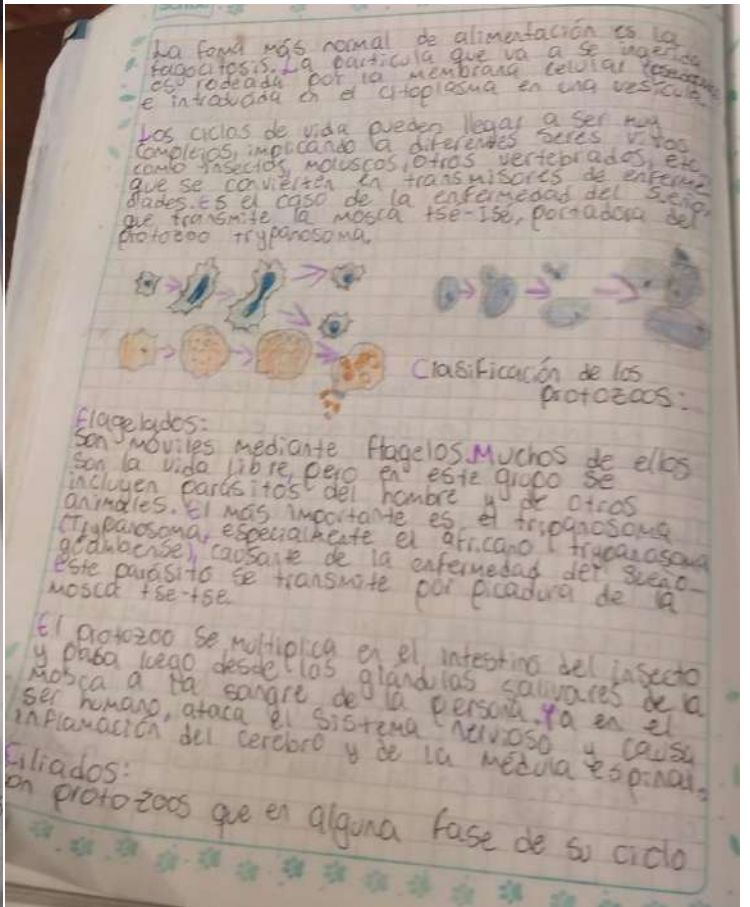 La forma más normal de alimentación es la
fagocitosis. La partícula que va a se ingerida
es rodeada por la membrana celular
e introducida en el citoplasma en una vesícula.
Los ciclos de vida pueden llegar a ser muy
complejos, implicando a diferentes seres vivos
como insectos, moluscos, otros vertebrados, etc
que se convierten en transmisores de enferme
dades. Es el caso de la enfermedad del sueño,
que transmite la mosca tse-tse, portadora del
protozoo trypanosoma.
Clasificación de los
protozoos:
flagelados:
Son móviles mediante flagelos. Muchos de ellos
son la vida libre, pero en este grupo se
incluyen parásitos del hombre y de otros
animales. El más importante es el tripanosoma
(Trypanosoma, especialmente el africano trypanasoma
gdambense), causante de la enfermedad del sueño-
este parásito se transmite por picadura de la
mosca tse-tse.
El protozoo se multiplica en el intestino del insecto
y pasa luego desde las glándulas salivares de la
mosca a la sangre de la persona. Ya en el
ser humano, ataca el sistema nervioso y causa
inflamación del cerebro y de la médula espinal.
Ciliados:
on protozoos que en alguna fase de su ciclo